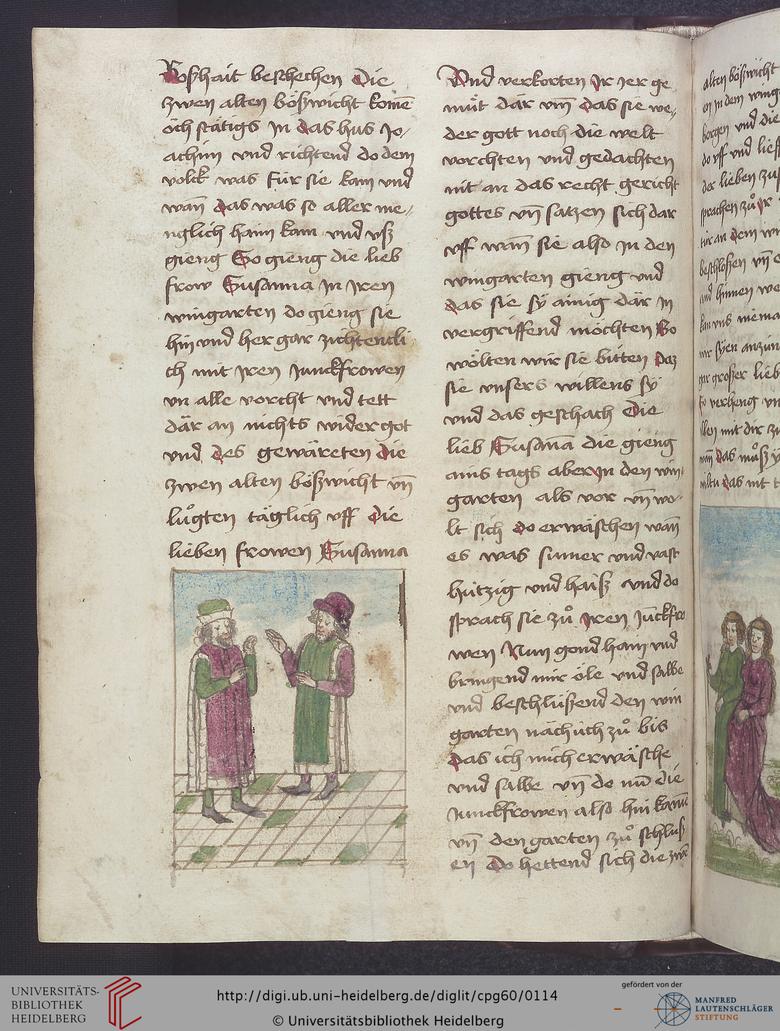 Boßhait beschechen Die
zwen alten bößwicht komē
öch stätigs in das hus Jo-
achim vnd richtend do dem
volck was für sie kam vnd
wañ das was so aller me-
nglich haim kam vnd vß
gieng So gieng die lieb
frow Susanna in Iren
wingarten do gieng sie
hin vnd her gar zichtencli
ch mit Iren Junckfrowen
vn alle vorcht vnd tett
där an nichts wider got
vnd des gewäreten die
zwen alten bößwicht vñ
lůgten täglich vff Die
lieben frowen Susanna
Vnd verkorten Ir Jer ge
müt dar vm das sie we-
der gott noch die welt
vorchten vnd gedachten
nit an das recht gericht
gottes vñ satzen sich dar
vff wañ sie also In den
wingarten gieng vnd
das sie sy ainig där In
vergriffend möchten So
wölten wir sie bitten Daz
sie vnsers willens sy
vnd das geschach Die
lieb Susaña die gieng
ains tags aber In den win
garten als vor vñ wo-
lt sich do erwäschen wañ
es was sumer vnd vast
hützig vnd haiß vnd do
sprach sie zů Iren Juckfro
wen Nun gond haim vnd
bringend mir öle vnd salbe
vnd beschlüßend den win
garten näch üch zů bis
das ich mich erwäsche
vnd salbe vñ do nū die
Junckfrowen also hin kamē
vñ den garten zů schluß
en Do hettend sich die zwē
alten bößwicht
in dem wing
borgen vnd die
do vff vnd lieff
der lieben zus
sprachen zů Ir
tür an dem wi
beschloßen vñ
vnd hinnen we
kan vns niema
wir syen anzun
gar großer lieb
verheng vn
llen mit dir zu
das můß
das nit
UNIVERSITÄTS-
BIBLIOTHEK
HEIDELBERG
http://digi.ub.uni-heidelberg.de/diglit/cpg60/0114
© Universitätsbibliothek Heidelberg
gefördert von der
MANFRED
LAUTENSCHLÄGER
STIFTUNG